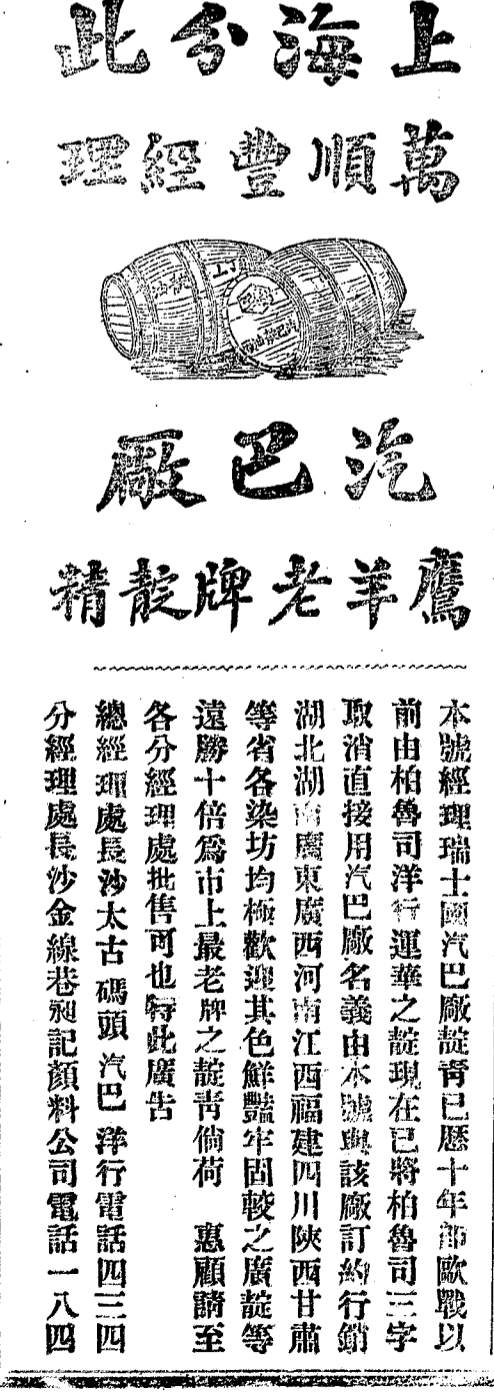 上海分此
萬順豐經理
汽巴廠
鷹羊老牌靛精
本號經理瑞士國汽巴廠靛青已歷十年卽歐戰以
前由柏魯司洋行運華之靛現在已將柏魯司三字
取消直接用汽巴廠名義由本號與該廠訂約行銷
湖北湖南廣東廣西河南江西福建四川陝西甘肅
等省各染坊均極歡迎其色鮮豔牢固較之廣靛等
遠勝十倍爲市上最老牌之靛青倘荷 惠顧請至
各分經理處批售可也特此廣告
總經理處長沙太古碼頭汽巴洋行電話四三四
分經理處長沙金線巷昶記顏料公司電話一八四